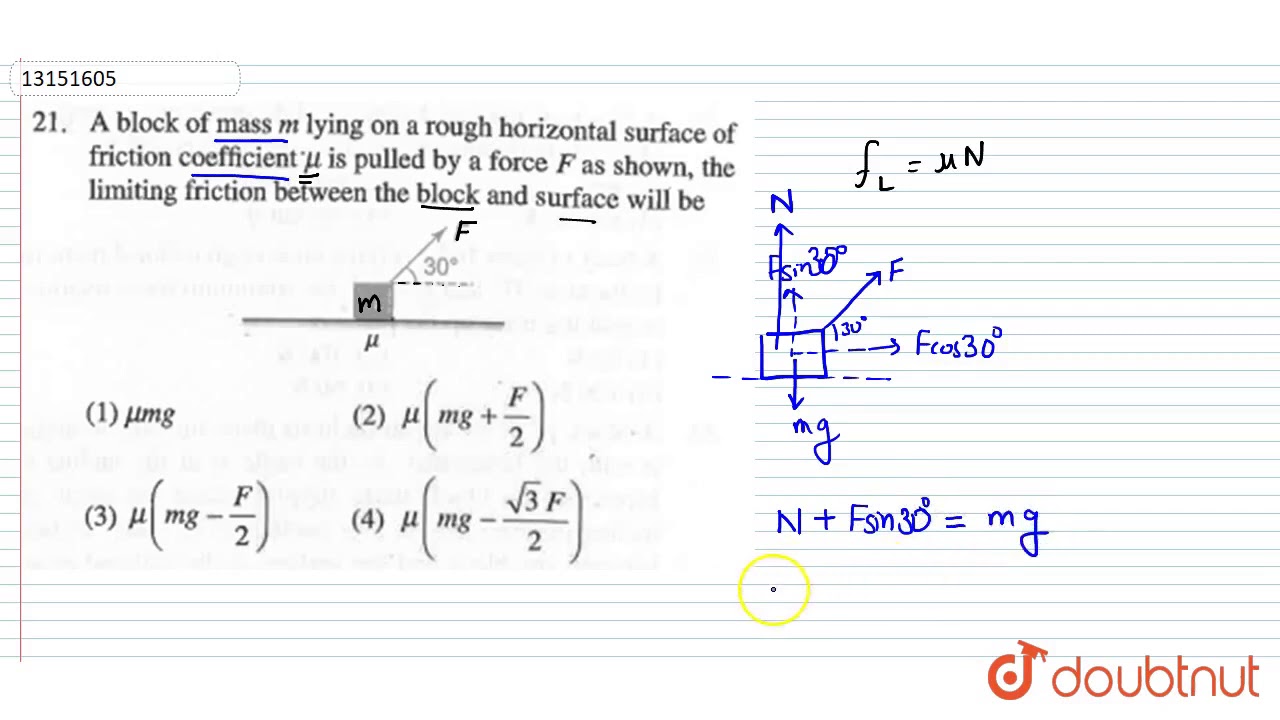 13151605
21. A block of mass m lying on a rough horizontal surface of
friction coefficient μ is pulled by a force F as shown, the
limiting friction between the block and surface will be
F
30°
m
μ
(1) μmg (2) μ(mg + F/2)
(3) μ(mg − F/2) (4) μ(mg − √3 F/2)
f_L = μN
N
Fsin30°
F
30°
Fcos30°
mg
N + Fsin30° = mg
doubtnut